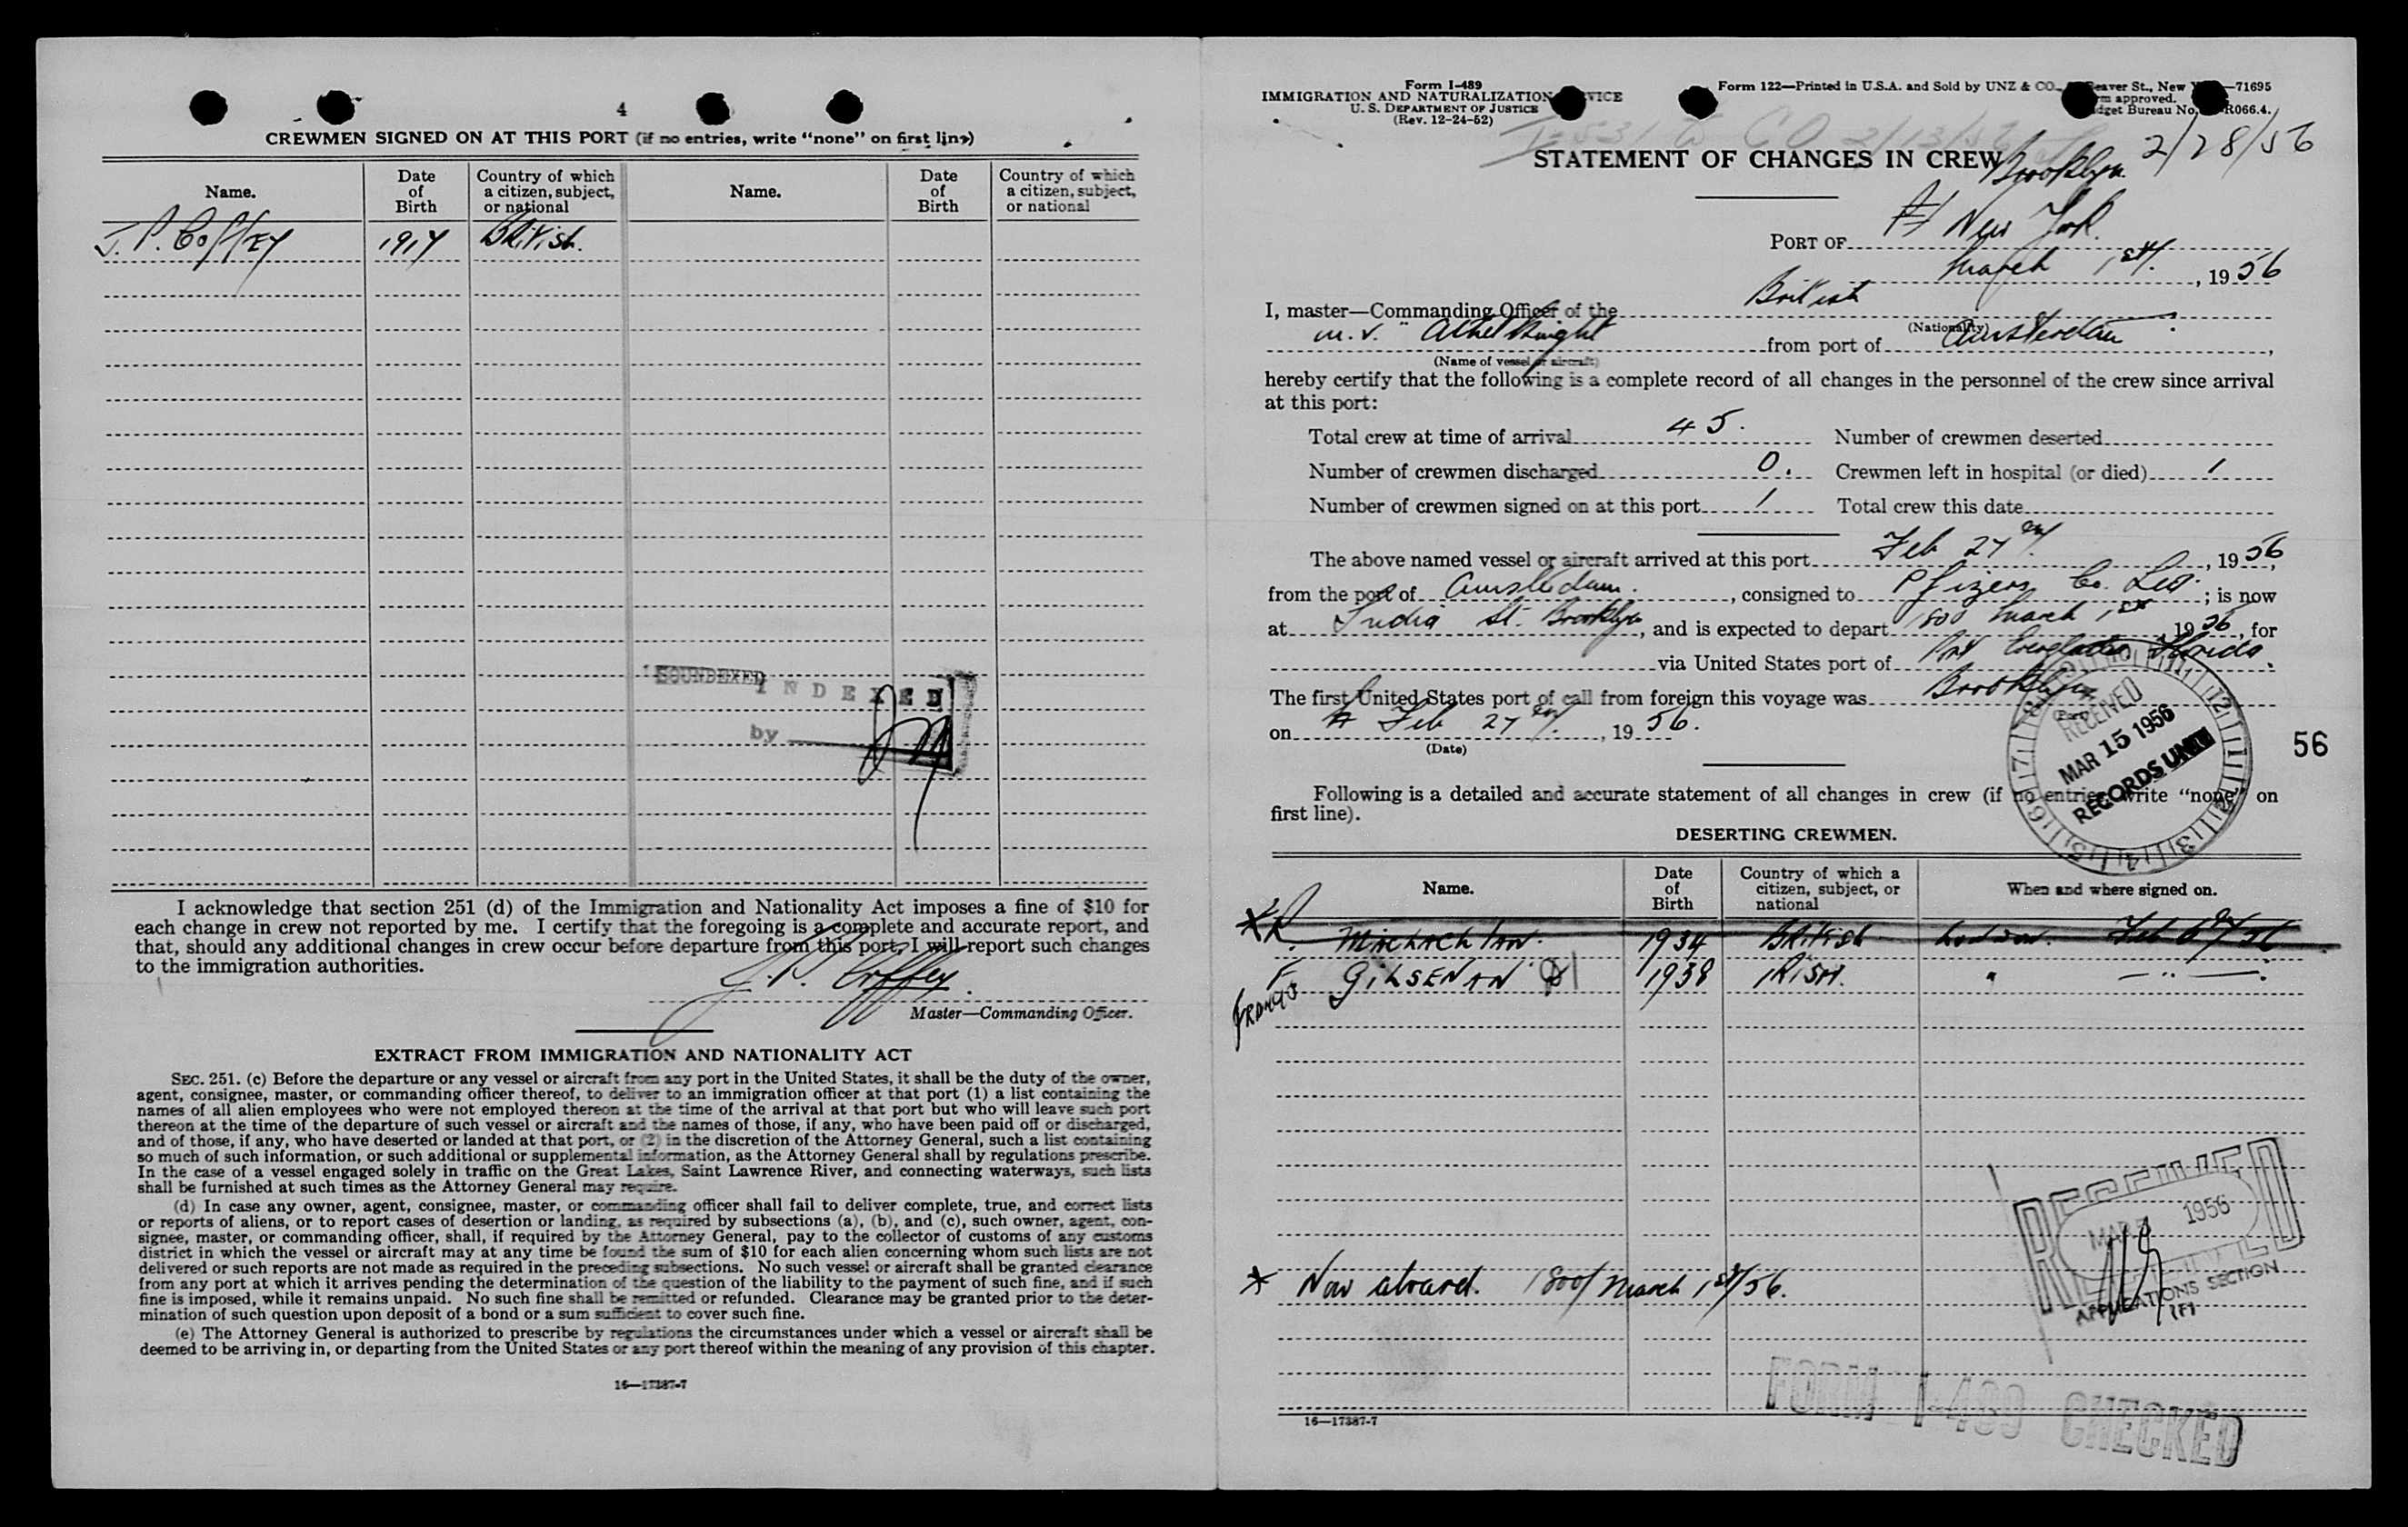 4
CREWMEN SIGNED ON AT THIS PORT (if no entries, write "none" on first line)
Name. Date of Birth Country of which a citizen, subject, or national Name. Date of Birth Country of which a citizen, subject, or national
J. P. Coffey 1917 British.
SOUNDEXED
INDEXED
by
I acknowledge that section 251 (d) of the Immigration and Nationality Act imposes a fine of $10 for
each change in crew not reported by me. I certify that the foregoing is a complete and accurate report, and
that, should any additional changes in crew occur before departure from this port, I will report such changes
to the immigration authorities.
J. P. Coffey.
Master—Commanding Officer.
EXTRACT FROM IMMIGRATION AND NATIONALITY ACT
SEC. 251. (c) Before the departure or any vessel or aircraft from any port in the United States, it shall be the duty of the owner,
agent, consignee, master, or commanding officer thereof, to deliver to an immigration officer at that port (1) a list containing the
names of all alien employees who were not employed thereon at the time of the arrival at that port but who will leave such port
thereon at the time of the departure of such vessel or aircraft and the names of those, if any, who have been paid off or discharged,
and of those, if any, who have deserted or landed at that port, or (2) in the discretion of the Attorney General, such a list containing
so much of such information, or such additional or supplemental information, as the Attorney General shall by regulations prescribe.
In the case of a vessel engaged solely in traffic on the Great Lakes, Saint Lawrence River, and connecting waterways, such lists
shall be furnished at such times as the Attorney General may require.
(d) In case any owner, agent, consignee, master, or commanding officer shall fail to deliver complete, true, and correct lists
or reports of aliens, or to report cases of desertion or landing, as required by subsections (a), (b), and (c), such owner, agent, con-
signee, master, or commanding officer, shall, if required by the Attorney General, pay to the collector of customs of any customs
district in which the vessel or aircraft may at any time be found the sum of $10 for each alien concerning whom such lists are not
delivered or such reports are not made as required in the preceding subsections. No such vessel or aircraft shall be granted clearance
from any port at which it arrives pending the determination of the question of the liability to the payment of such fine, and if such
fine is imposed, while it remains unpaid. No such fine shall be remitted or refunded. Clearance may be granted prior to the deter-
mination of such question upon deposit of a bond or a sum sufficient to cover such fine.
(e) The Attorney General is authorized to prescribe by regulations the circumstances under which a vessel or aircraft shall be
deemed to be arriving in, or departing from the United States or any port thereof within the meaning of any provision of this chapter.
16—17387-7
Form I-489
IMMIGRATION AND NATURALIZATION VICE
U. S. DEPARTMENT OF JUSTICE
(Rev. 12-24-52)
Form 122—Printed in U.S.A. and Sold by UNZ & CO., eaver St., New —71695
m approved.
dget Bureau No. R066.4.
STATEMENT OF CHANGES IN CREW
Brooklyn 2/28/56
PORT OF New York.
March 1st, 1956
I, master—Commanding Officer of the British
(Nationality)
m.v. "Athelknight from port of Amsterdam,
(Name of vessel or aircraft)
hereby certify that the following is a complete record of all changes in the personnel of the crew since arrival
at this port:
Total crew at time of arrival 45. Number of crewmen deserted
Number of crewmen discharged 0. Crewmen left in hospital (or died) 1
Number of crewmen signed on at this port 1 Total crew this date
The above named vessel or aircraft arrived at this port Feb 27th, 1956,
from the port of Amsterdam., consigned to Pfizers Co. Ltd.; is now
at India St. Brooklyn, and is expected to depart 1800 March 1st, 1956, for
via United States port of Port Everglades Florida.
The first United States port of call from foreign this voyage was Brooklyn
(Port)
on Feb 27th, 1956.
(Date)
RECEIVED
MAR 15 1956
RECORDS UNIT
56
Following is a detailed and accurate statement of all changes in crew (if no entries, write "none" on
first line).
DESERTING CREWMEN.
Name. Date of Birth Country of which a citizen, subject, or national When and where signed on.
1934 British London. Feb 6th/56
F. GILSENAN 1938 IRISH. " — " —.
FRANCIS
* Now aboard. 1800/ March 1st/56.
RECEIVED
MAR 1956
FIELD
APPLICATIONS SECTION
(F)
FORM I-489 CHECKED
16—17387-7